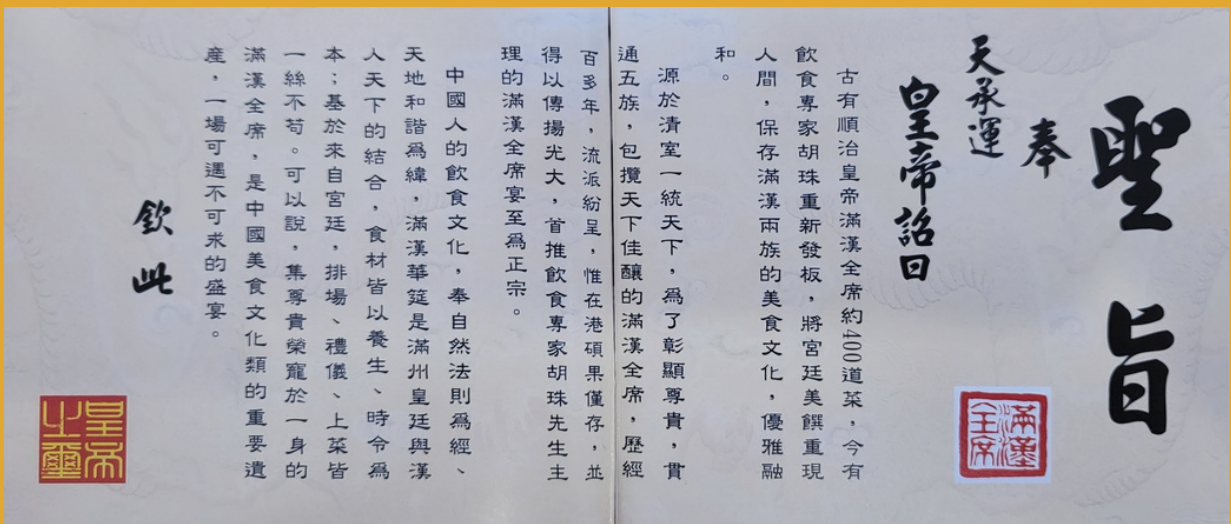 聖旨
奉
天承運
皇帝詔曰
古有順治皇帝滿漢全席約400道菜，今有
飲食專家胡珠重新發板，將宮廷美饌重現
人間，保存滿漢兩族的美食文化，優雅融
和。
源於清室一統天下，爲了彰顯尊貴，貫
通五族，包攬天下佳釀的滿漢全席，歷經
百多年，流派紛呈，惟在港碩果僅存，並
得以傳揚光大，首推飲食專家胡珠先生主
理的滿漢全席宴至爲正宗。
中國人的飲食文化，奉自然法則爲經、
天地和諧爲緯，滿漢華筵是滿州皇廷與漢
人天下的結合，食材皆以養生、時令爲
本；基於來自宮廷，排場、禮儀、上菜皆
一絲不苟。可以說，集尊貴榮寵於一身的
滿漢全席，是中國美食文化類的重要遺
産，一場可遇不可求的盛宴。
欽此
滿漢全席
皇帝之璽